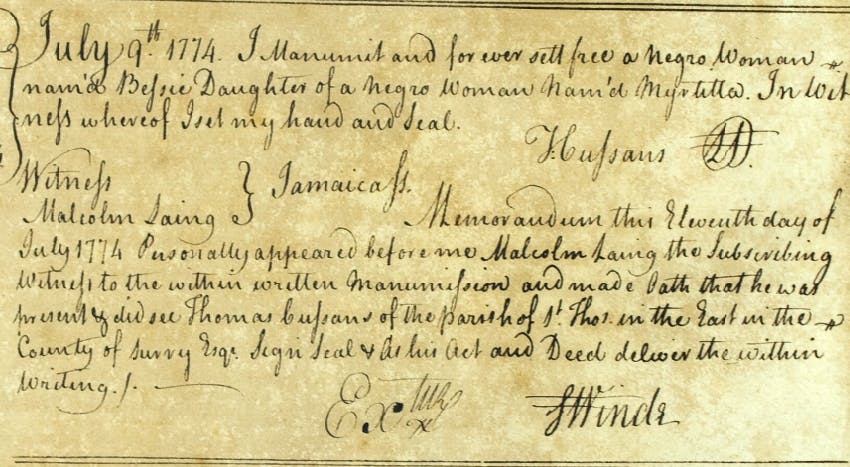 July 9th. 1774. I Manumit and for ever sett free a Negro Woman
nam'd Bessie Daughter of a Negro Woman Nam'd Myrtilla. In Wit
ness whereof I set my hand and Seal.
T. Cussans LS.
Witness
Malcolm Laing } Jamaica ss.
Memorandum this Eleventh day of
July 1774 Personally appeared before me Malcolm Laing the Subscribing
Witness to the within written Manumission and made Oath that he was
present & did see Thomas Cussans of the parish of St. Thos. in the East in the
County of Surry Esqr. Sign Seal & as his Act and Deed deliver the within
Writing./.
Ex
SWinde